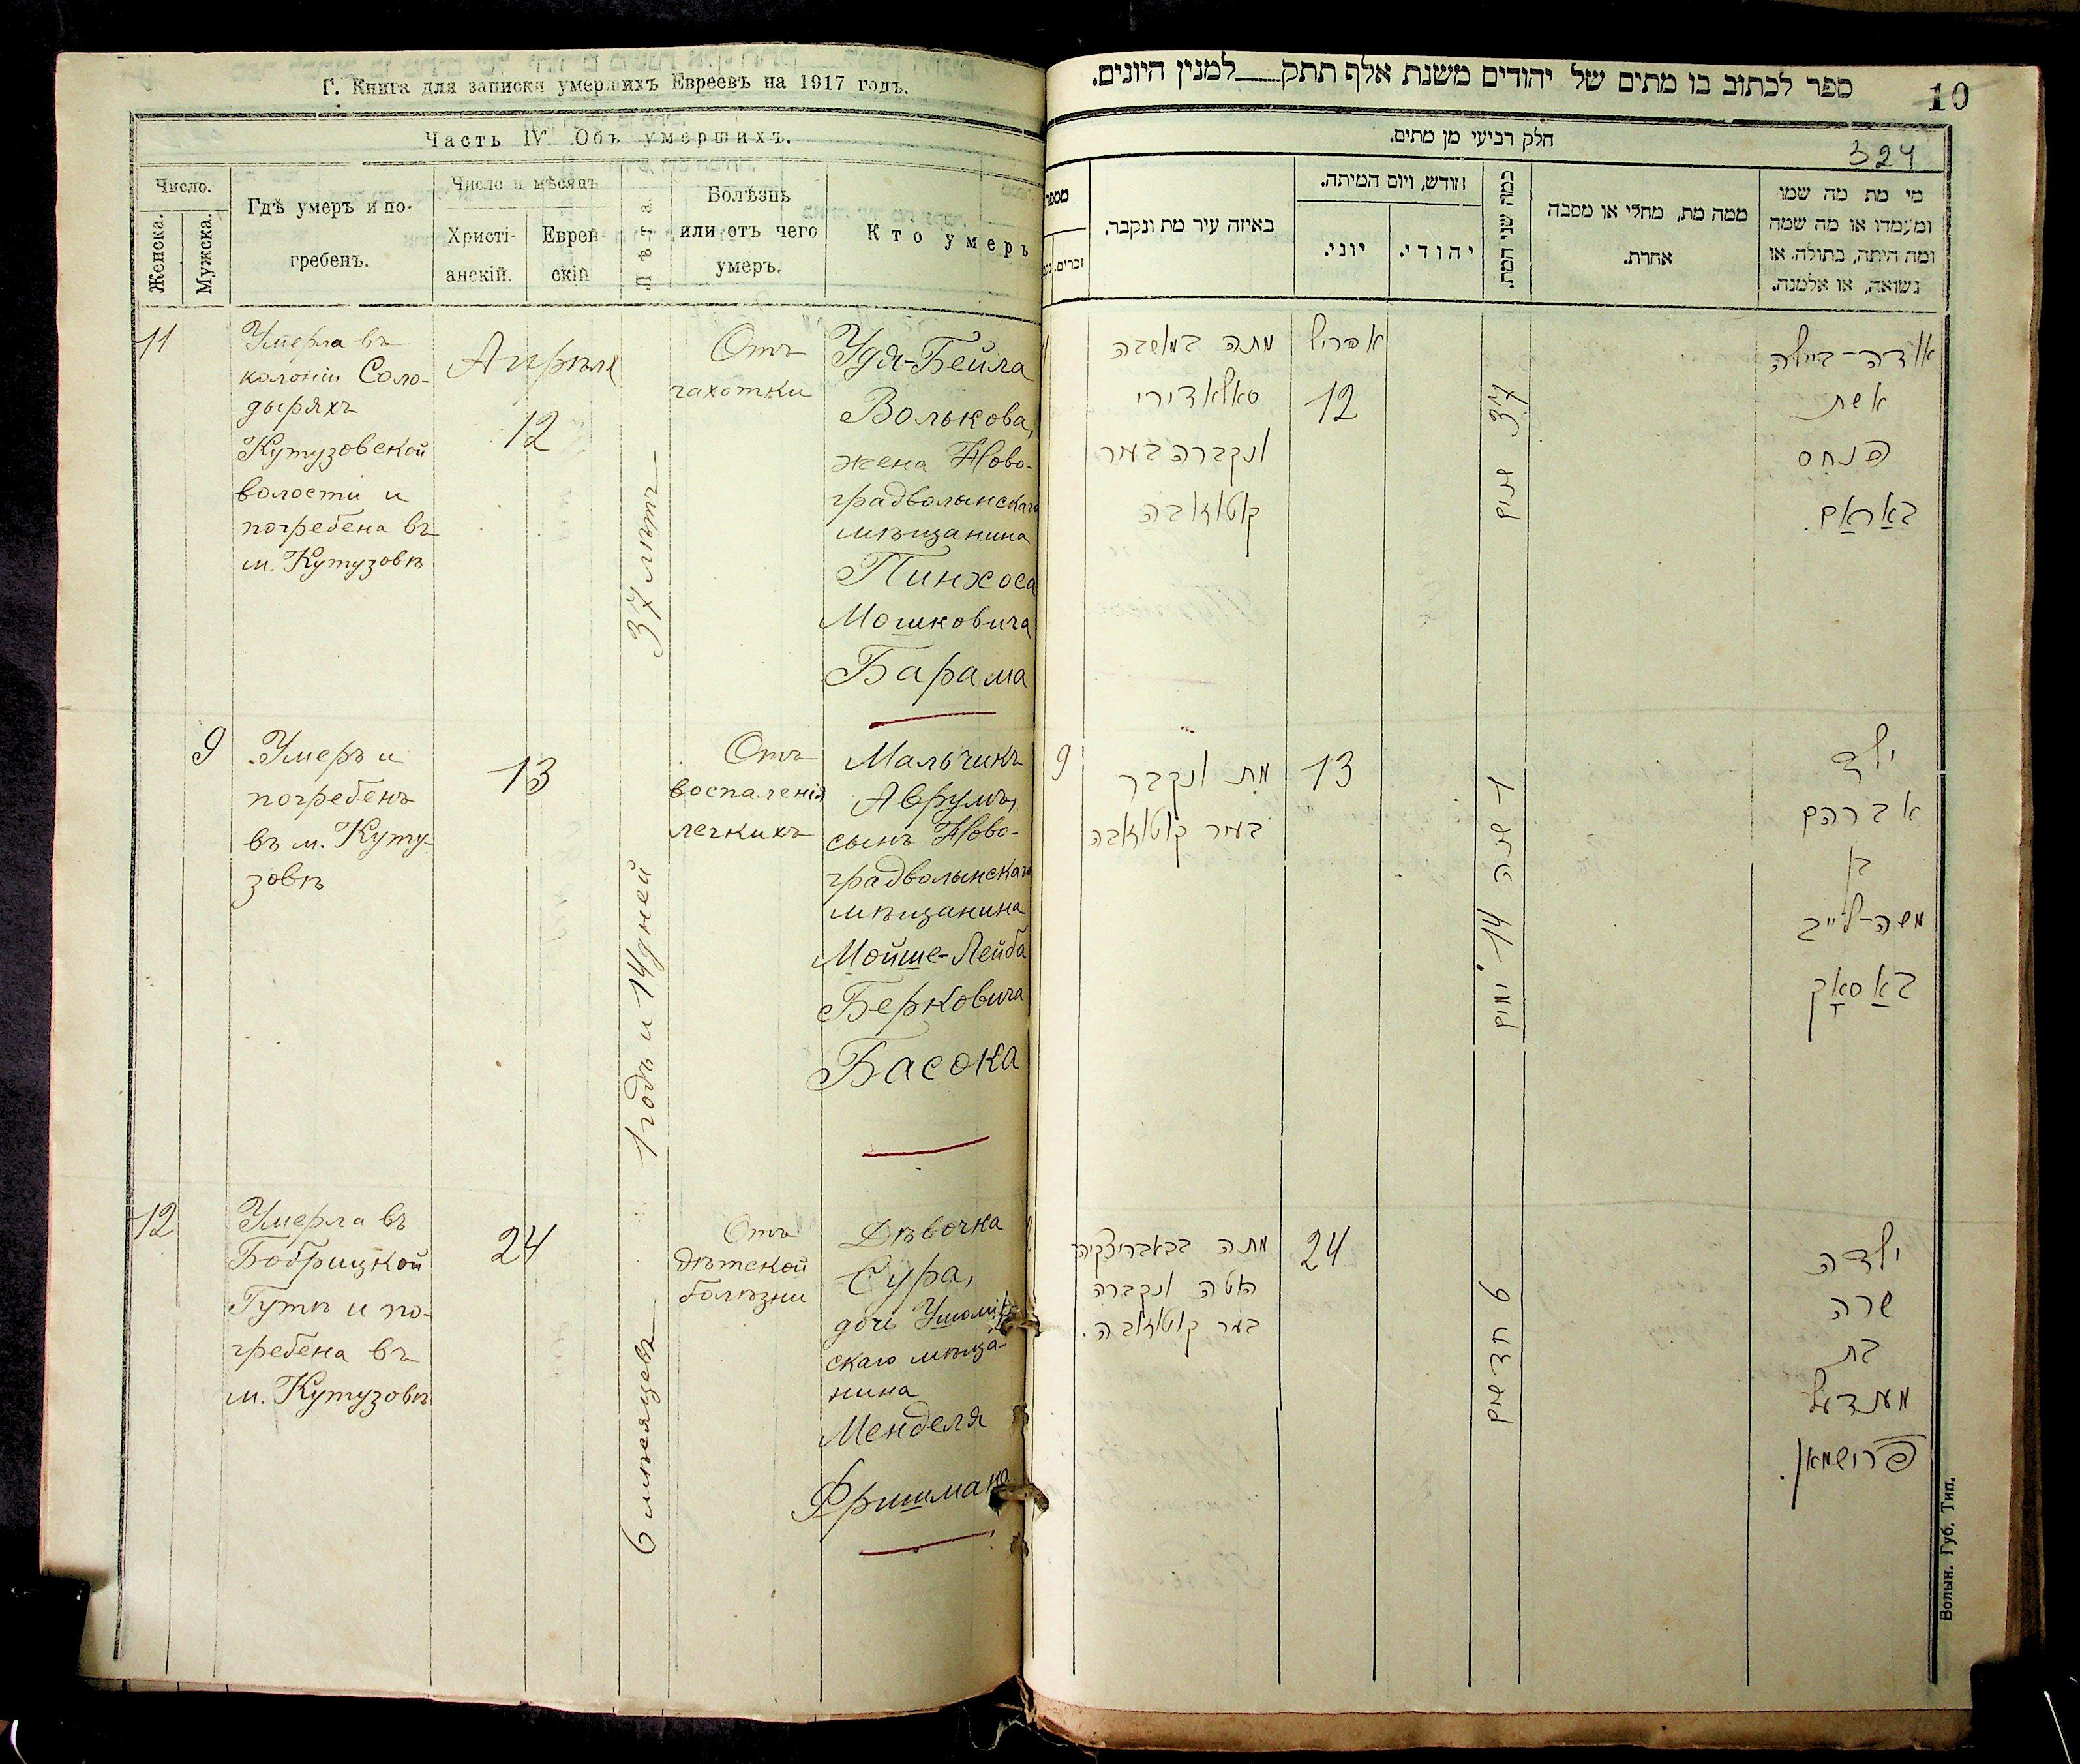 Г. Книга для записки умершихъ Евреевъ на 1917 годъ.
Часть IV Объ умершихъ.
Число.
Женска.
Мужска.
Гдѣ умеръ и по-
гребенъ.
Число и мѣсяцъ
Христі-
анскій.
Еврей-
скій
Лѣта.
Болѣзнь
или отъ чего
умеръ.
Кто умеръ
11
Умерла въ
колоніи Соло-
дыряхъ
Кутузовской
волости и
погребена въ
м. Кутузовѣ
Апрѣля
12
37 лѣтъ
Отъ
чахотки
Удя-Бейла
Волькова,
жена Ново-
градволынскаго
мѣщанина
Пинхоса
Мошковича
Барама
9
Умеръ и
погребенъ
въ м. Куту-
зовѣ
13
1 годъ и 14 дней
Отъ
воспаленія
легкихъ
Мальчикъ
Аврумъ,
сынъ Ново-
градволынскаго
мѣщанина
Мойше-Лейба
Берковича
Басока
12
Умерла въ
Бобрицкой
Гутѣ и по-
гребена въ
м. Кутузовѣ
24
6 мѣсяцевъ
Отъ
дѣтской
болѣзни
Дѣвочка
Сура,
дочь
скаго мѣща-
нина
Менделя
Фришмана
ספר לכתוב בו מתים של יהודים משנת אלף תתק___למנין היונים.
10
חלק רביעי מן מתים.
324
זכרים.
באיזה עיר מת ונקבר.
חודש, ויום המיתה.
יוני.
יהודי.
כמה שני המת.
ממה מת, מחלי או מסבה
אחרת.
מי מת מה שמו
ומעמדו או מה שמה
ומה היתה, בתולה, או
נשואה, או אלמנה.
מתה במאשבה
סאלאדירי
ונקברה בעיר
קוטוזאבה
אפריל
12
37 שנים
אודה-ביילה
אשת
פנחס
באַראַם.
9
מת ונקבר
בעיר קוטוזאבה
13
1 שנה 14 ימים
ילד
אברהם
בן
משה-לייב
באַסאָק
מתה בבאבריצקיה
הוטה ונקברה
בעיר קוטוזאבה.
24
6 חדשים
ילדה
שרה
בת
מענדעל
פרישמאן.
Волын. Губ. Тип.